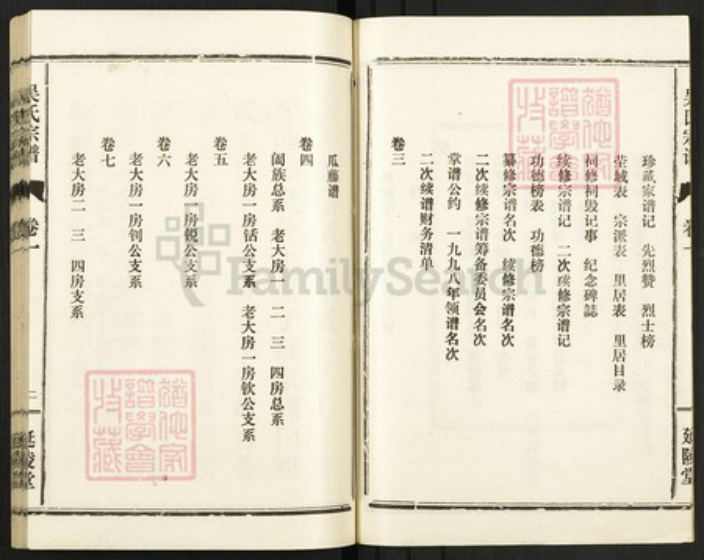 珍藏家谱记　先烈赞　烈士榜
茔城表　宗派表　里居表　里居目录
祠修祠毁记事　纪念碑誌
续修宗谱记　二次续修宗谱记
功德榜表　功德榜
纂修宗谱名次　续修宗谱名次
二次续修宗谱筹备委员会名次
掌谱公约　一九九八年领谱名次
二次续谱财务清单
卷三
延陵堂
瓜藤谱
卷四
阖族总系　老大房一　二　三　四房总系
老大房一房铦公支系　老大房一房钦公支系
卷五
老大房一房锐公支系
卷六
老大房一房钊公支系
卷七
老大房二　三　四房支系
吴氏宗谱
卷一
二
延陵堂
FamilySearch